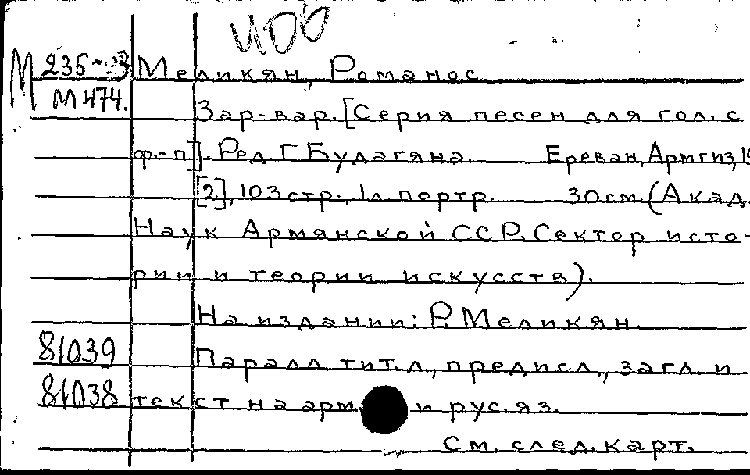 М 235-33 Меликян, Романос
М474. Зар-вар. [Серия песен для гол. с
ф-п]. Ред. Г Будагяна. Ереван, Армгиз, 19
[2], 103 стр., 1 л. портр. 30 см. (Акад.
Наук Армянской ССР. Сектор исто-
рии и теории искусств).
На издании: Р. Меликян.
81039 Паралл тит. л., предисл., загл. и
81038 текст на арм. и рус. яз.
См. след. карт.